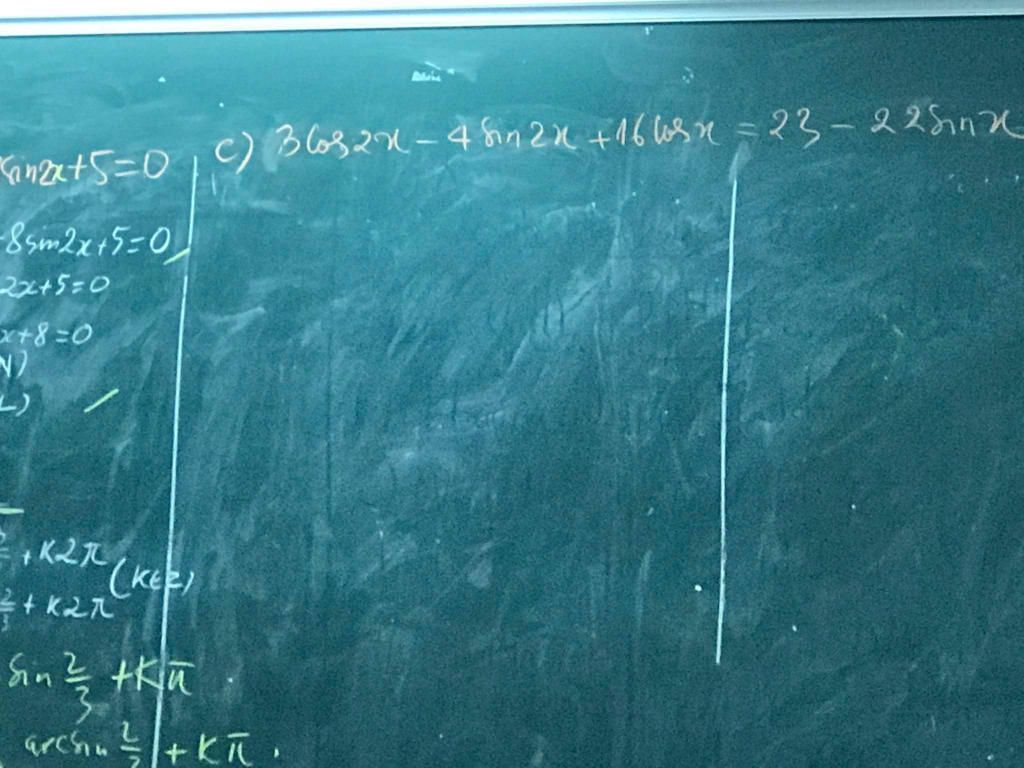 sin2x+5=0
-8sin2x+5=0
2x+5=0
x+8=0
N)
L)
+K2π
(K∈Z)
2/3 +K2π
sin 2/3 +Kπ
arcsin 2/3 +Kπ.
c) 3cos2x-4sin2x+16cosx=23-22sinx